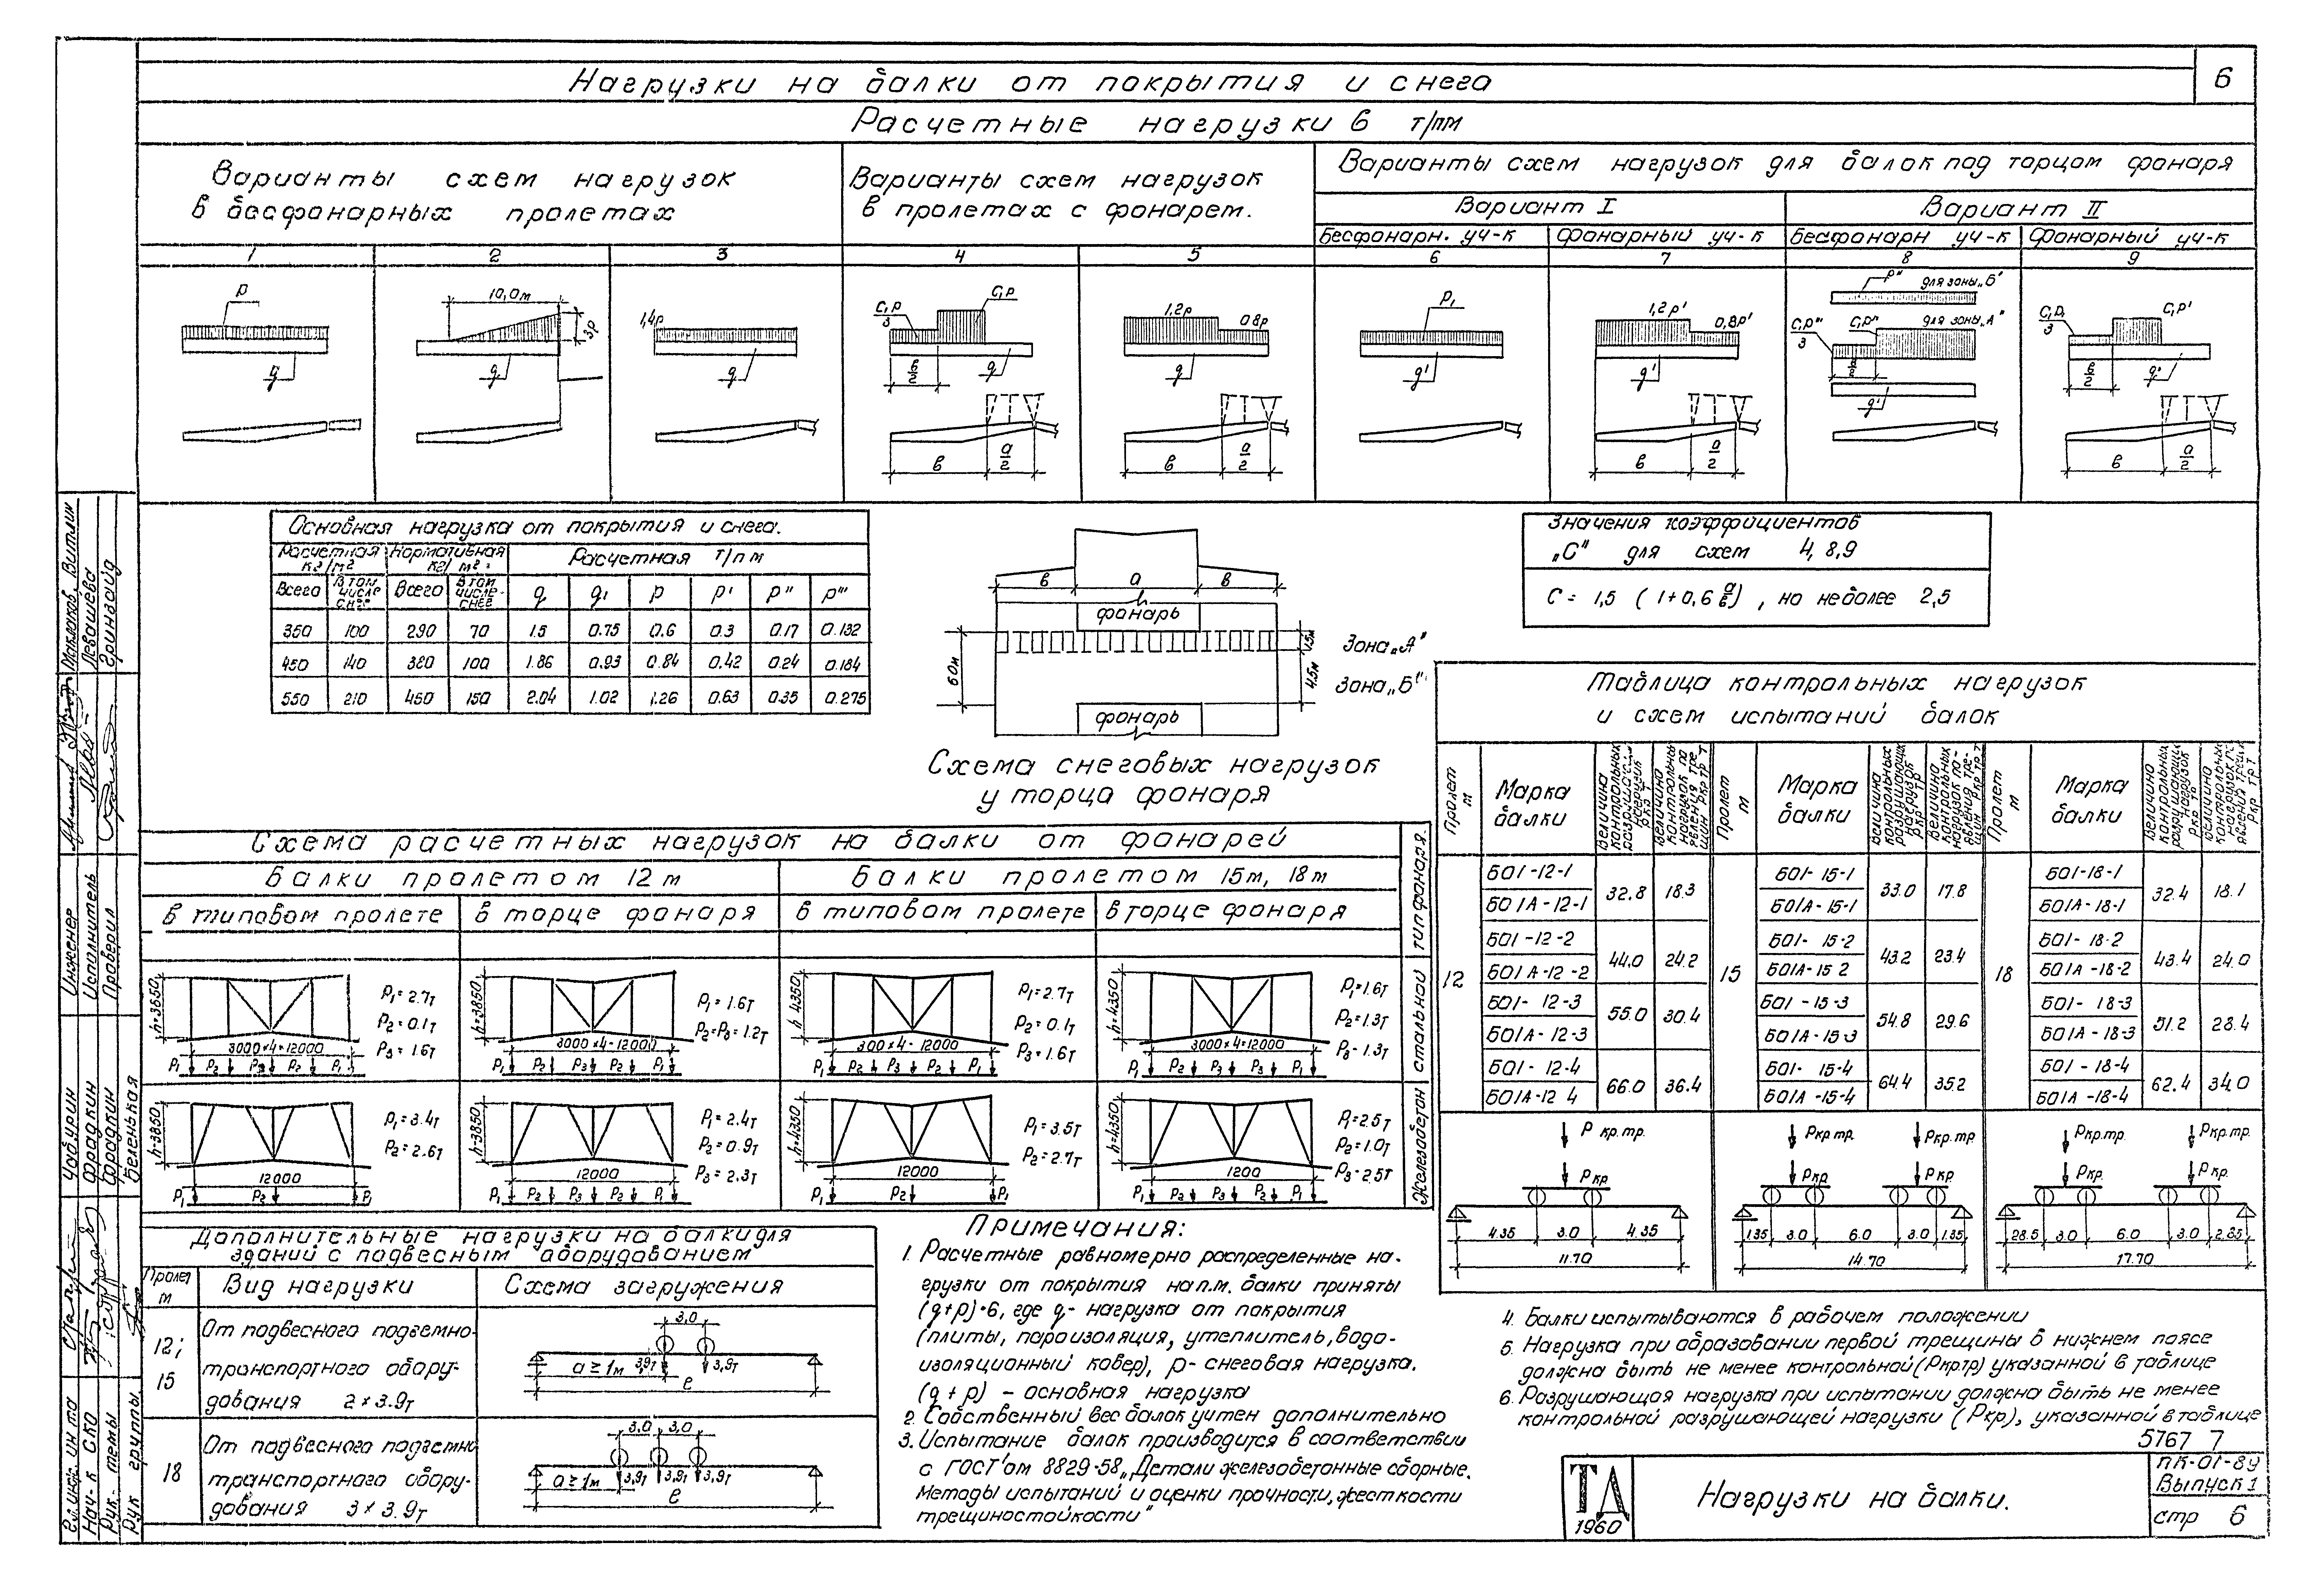 6
Нагрузки на балки от покрытия и снега
Расчетные нагрузки в т/пм
Варианты схем нагрузок
в бесфонарных пролетах
Варианты схем нагрузок
в пролетах с фонарем.
Варианты схем нагрузок для балок под торцом фонаря
Вариант I
Вариант II
Бесфонарн. уч-к
Фонарный уч-к
Бесфонарн уч-к
Фонарный уч-к
1 2 3 4 5 6 7 8 9
p
q
10,0м
3p
q
1,4p
q
C₁p
3
C₁p
в
2
q
в
а
2
1,2p
0.8p
q
в
а
2
P₁
q'
1,2p'
0,8p'
q'
в
а
2
p"
для зоны „Б"
для зоны „А"
C₁p'''
3
C₁p"
2
q'
C₁p₁
3
C₁p'
в
2
в
а
2
Основная нагрузка от покрытия и снега.
Расчетная кг/м²
Нормативная кг/м²
Расчетная т/п м
Всего
В том числе снег
Всего
В том числе снег
q q₁ p p' p" p'''
350 100 290 70 1.5 0.75 0.6 0.3 0.17 0.132
450 140 380 100 1.86 0.93 0.84 0.42 0.24 0.184
550 210 450 150 2.04 1.02 1.26 0.63 0.35 0.275
в а в
фонарь
60м
15м
45м
Зона „А"
Зона „Б"
фонарь
Схема снеговых нагрузок
у торца фонаря
Значения коэффициентов
„С" для схем 4, 8, 9
С = 1,5 (1+0,6 а/в), но не более 2,5
Таблица контрольных нагрузок
и схем испытаний балок
Пролет м
Марка балки
Величина контрольных разрушающих нагрузок Ркр Т
Величина контрольных нагрузок появления трещин Ркр тр Т
Пролет м
Марка балки
Величина контрольных разрушающих нагрузок Ркр Т
Величина контрольных нагрузок появления трещин Ркр тр Т
Пролет м
Марка балки
Величина контрольных разрушающих нагрузок Ркр Т
12
15
18
БО1-12-1
БО1А-12-1
32.8 18.3
БО1-15-1
БО1А-15-1
33.0 17.8
БО1-18-1
БО1А-18-1
32.4 18.1
БО1-12-2
БО1А-12-2
44,0 24.2
БО1-15-2
БО1А-15 2
43.2 23.4
БО1-18-2
БО1А-18-2
43.4 24.0
БО1-12-3
БО1А-12-3
55.0 30.4
БО1-15-3
БО1А-15-3
54.8 29.6
БО1-18-3
БО1А-18-3
51.2 28.4
БО1-12-4
БО1А-12 4
66.0 36.4
БО1-15-4
БО1А-15-4
64.4 35.2
БО1-18-4
БО1А-18-4
62.4 34.0
Р кр.тр.
Р кр
4.35 3.0 4.35
11.70
Ркр.тр.
Ркр.тр
Ркр
Ркр
1.35 3.0 6.0 3.0 1.35
14.70
Ркр.тр.
Ркр.тр.
Ркр.
Ркр.
28.5 3.0 6.0 3.0 2.85
17.70
Схема расчетных нагрузок на балки от фонарей
Балки пролетом 12 м
Балки пролетом 15м, 18м
в типовом пролете
в торце фонаря
в типовом пролете
в торце фонаря
тип фонаря.
стальной
железобетон
h=3850
3000×4=12000
P₁ P₂ P₃ P₂ P₁
P₁=2.7т
P₂=0.1т
P₃=1.6т
h=3850
3000×4=12000
P₁ P₂ P₃ P₂ P₁
P₁=1.6т
P₂=P₃=1.2т
h 4350
300×4=12000
P₁ P₂ P₃ P₂ P₁
P₁=2.7т
P₂=0.1т
P₃=1.6т
h=4350
3000×4=12000
P₁ P₂ P₃ P₂ P₁
P₁=1.6т
P₂=1.3т
P₃=1.3т
h=3850
12000
P₁ P₂ P₁
P₁=3.4т
P₂=2.6т
h=3850
12000
P₁ P₂ P₃ P₂ P₁
P₁=2.4т
P₂=0.9т
P₃=2.3т
h=4350
12000
P₁ P₂ P₁
P₁=3.5т
P₂=2.7т
h=4350
1200
P₁ P₂ P₃ P₂ P₁
P₁=2.5т
P₂=1.0т
P₃=2.5т
Дополнительные нагрузки на балки для
зданий с подвесным оборудованием
Пролет м
Вид нагрузки
Схема загружения
12;
15
От подвесного подъемно-
транспортного обору-
дования 2×3.9т
3,0
а≥1м
3,9т
3,9т
ℓ
18
От подвесного подъемно
транспортного обору-
дования 3×3.9т
3,0 3,0
а≥1м
3,9т 3,9т 3,9т
ℓ
Примечания:
1. Расчетные равномерно распределенные на-
грузки от покрытия на п.м. балки приняты
(q+p)·6, где q- нагрузка от покрытия
(плиты, пароизоляция, утеплитель, водо-
изоляционный ковер), p- снеговая нагрузка.
(q+p) - основная нагрузка
2. Собственный вес балок учтен дополнительно
3. Испытание балок производится в соответствии
с ГОСТ'ом 8829-58 „Детали железобетонные сборные.
Методы испытаний и оценки прочности, жесткости
трещиностойкости"
4. Балки испытываются в рабочем положении
5. Нагрузка при образовании первой трещины в нижнем поясе
должна быть не менее контрольной (Ркртр) указанной в таблице
6. Разрушающая нагрузка при испытании должна быть не менее
контрольной разрушающей нагрузки (Ркр), указанной в таблице
5767 7
ТА
1960
Нагрузки на балки.
ПК-01-89
Выпуск 1
стр 6
Витлин
Левашева
Гринзайд
Инженер
Исполнитель
Проверил
Чабурин
Фрадкин
Фрадкин
Беленькая
Гл. инж. ин та
Нач-к СКО
Рук. темы
Рук группы